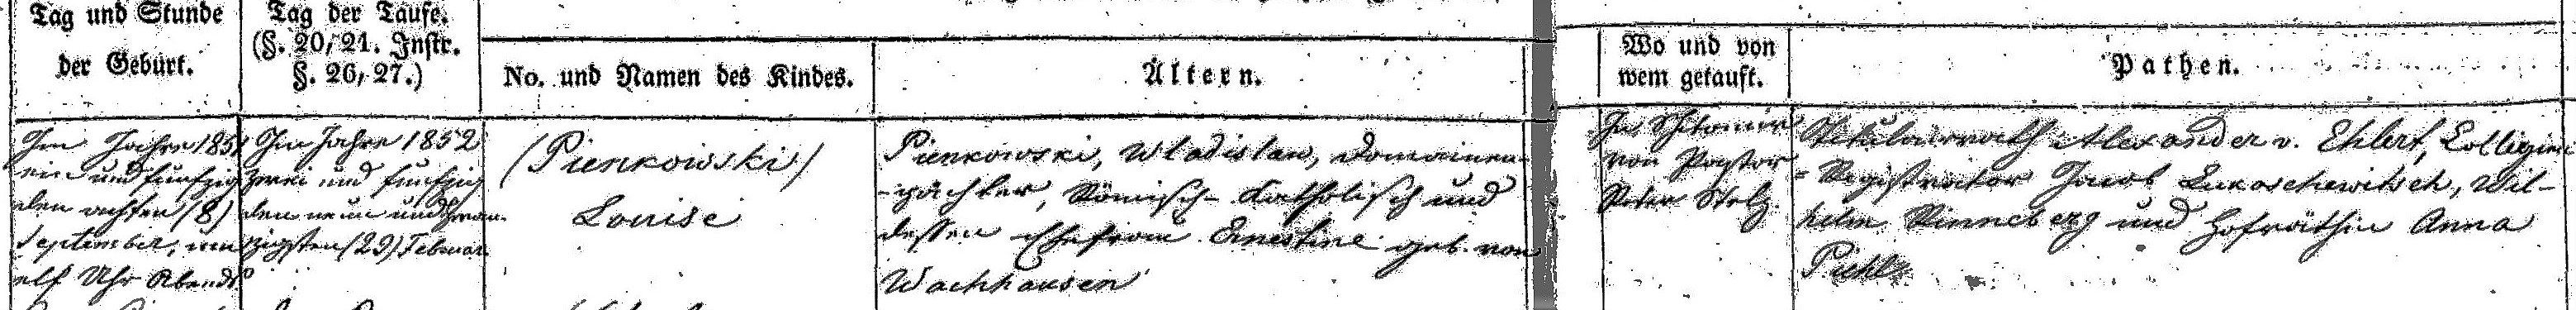 Tag und Stunde
der Geburt.
Tag der Taufe.
(§. 20, 21. Instr.
§. 26, 27.)
No. und Namen des Kindes.
Ältern.
Wo und von
wem getauft.
Pathen.
Im Jahre 1851
ein und funfzig
den achten (8)
September, um
elf Uhr Abends
Im Jahre 1852
zwei und funfzig
den neun und zwan-
zigsten (29) Februar
(Pienkowski)
Louise
Pienkowski, Wladislaw, Domainen-
-pächter, Römisch-Katholisch und
dessen Ehefrau Ernestine geb. von
Wachhausen
In Shitomir
von Pastor
Peter Stelz.
Titulairrath Alexander v. Ehlert, Collegien
-Registrator Jacob Lukaschewitsch, Wil-
helm Rinneberg und Hofräthin Anna
Piehl